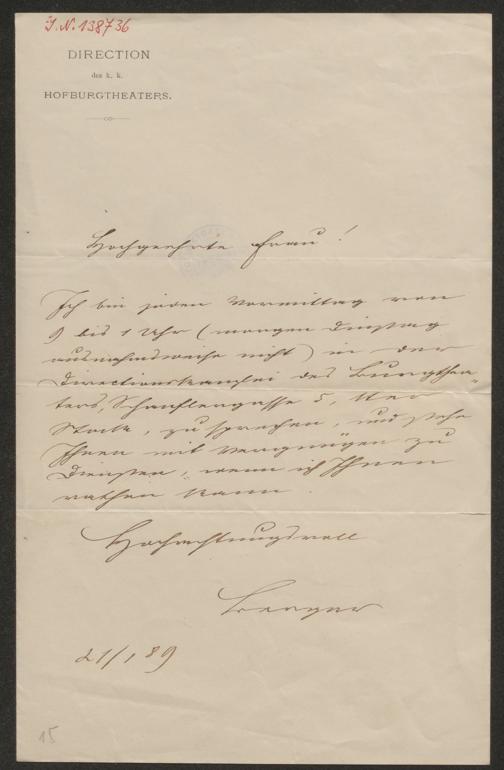 I. N. 138736
DIRECTION
des k. k.
HOFBURGTHEATERS.
Hochgeehrte Frau!
Ich bin jeden Vormittag von
9 bis 1 Uhr (morgen Dinstag
ausnahmsweise nicht) in der
Directionskanzlei des Burgthea-
ters, Schauflergasse 5, IIter
Stock, zu sprechen, und stehe
Ihnen mit Vergnügen zu
Diensten, wenn ich Ihnen
rathen kann.
Hochachtungsvoll
Berger
21/1 89
15